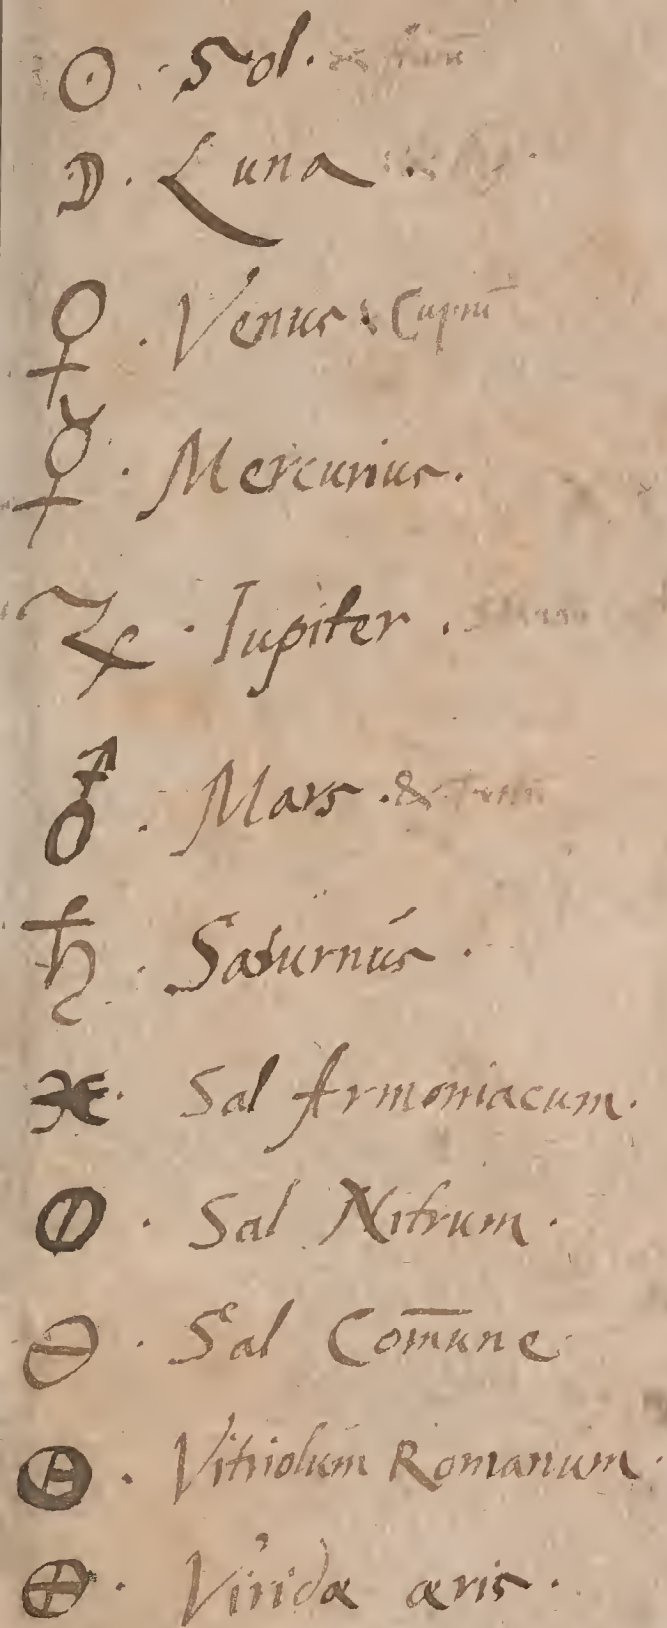 ☉ · Sol.
☽ · Luna
♀ · Venus · Cuprū
☿ · Mercurius.
♃ · Iupiter .
♂ · Mars . &
♄ · Saturnús .
Sal Armoniacum.
· Sal Nitrum .
· Sal Com̄une
· Vitriolúm Romanum .
· Viridæ æris .